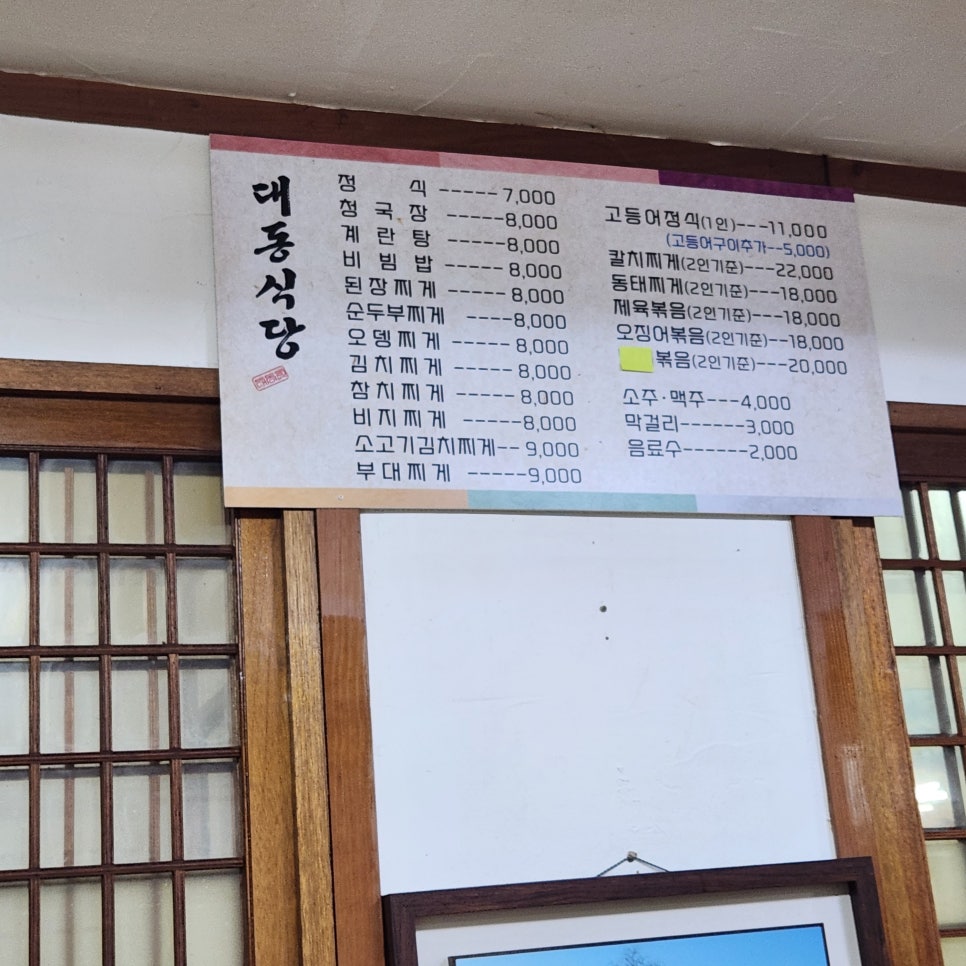 대동식당
정 식 -----7,000
청 국 장 -----8,000
계 란 탕 -----8,000
비 빔 밥 -----8,000
된장찌게 -----8,000
순두부찌게 ----8,000
오뎅찌게 -----8,000
김치찌게 -----8,000
참치찌게 -----8,000
비지찌게 -----8,000
소고기김치찌게-- 9,000
부대찌게 -----9,000
고등어정식(1인)---11,000
(고등어구이추가--5,000)
칼치찌게(2인기준)---22,000
동태찌게(2인기준)---18,000
제육볶음(2인기준)---18,000
오징어볶음(2인기준)--18,000
볶음(2인기준)---20,000
소주·맥주---4,000
막걸리------3,000
음료수------2,000